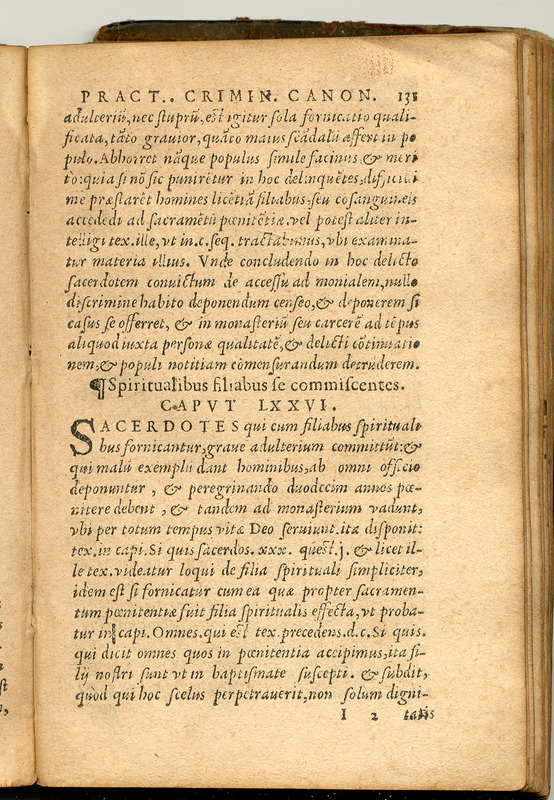 PRACT.. CRIMIN. CANON. 131
adulceriũ, nec ſtuprũ, eſt igitur ſola fornicatio quali-
ficata, tãto grauior, quãto maius ſcãdalũ affert in po
pulo. Abhorret nãque populus ſimile facinus, & meri
to: quia ſi nõ ſic punirẽtur in hoc delinquẽtes, dif
me præſtarẽt homines licẽtiã filiabus, ſeu cõſanguineis
accedẽdi ad ſacramẽtũ pœnitẽtiæ. vel poteſt aliter in-
telligi tex. ille, vt in. c. ſeq. tractabimus, vbi examina-
tur materia illius. Vnde concludendo in hoc delicto
ſacerdotem conuictum de acceſſu ad monialem, nullo
diſcrimine habito deponendum cenſeo, & deponerem ſi
caſus ſe offerret, & in monaſteriũ ſeu carcerẽ ad tẽpus
aliquod iuxta perſonæ qualitatẽ, & delicti cõtinuatio
nem, & populi notitiam cõmenſurandum detruderem.
¶ Spiritualibus filiabus ſe commiſcentes.
CAPVT LXXVI.
SACERDOTES qui cum filiabus ſpirituali
bus fornicantur, graue adulterium committũt: &
qui malũ exemplũ dant hominibus, ab omni officio
deponuntur, & peregrinando duodecim annos pœ-
nitere debent, & tandem ad monaſterium vadunt,
vbi per totum tempus vitæ Deo ſeruiunt. ita diſponit:
tex. in capi. Si quis ſacerdos. xxx. quæſt. j. & licet il-
le tex. videatur loqui de filia ſpirituali ſimpliciter,
idem eſt ſi fornicatur cum ea quæ propter ſacramen-
tum pœnitentiæ fuit filia ſpiritualis effecta, vt proba-
tur in capi. Omnes. qui eſt tex. precedens. d. c. Si quis.
qui dicit omnes quos in pœnitentia accipimus, ita fi-
lij noſtri ſunt vt in baptiſmate ſuſcepti. & ſubdit,
quòd qui hoc ſcelus perpetrauerit, non ſolum digni-
I 2 tatis